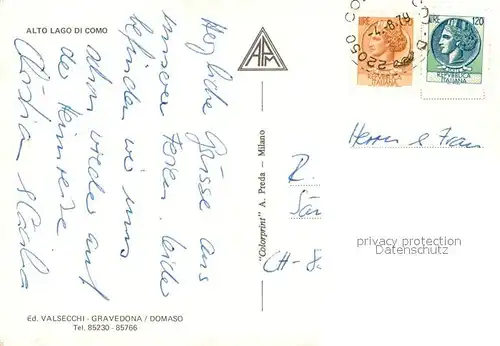 ALTO LAGO DI COMO
Herzliche Grüsse aus
unseren Ferien. Leider
befinden wir uns
schon wieder auf
der Heimreise
Ed. VALSECCHI - GRAVEDONA / DOMASO
Tel. 85230 - 85766
APM
"Colorprint" A. Preda - Milano
LIRE
22050 CO
-4.-8.79
REPVBBLICA
ITALIANA
LIRE 120
REPVBBLICA
ITALIANA
Herrn & Frau
R.
CH-8
privacy protection
ansichtskartenversand.com